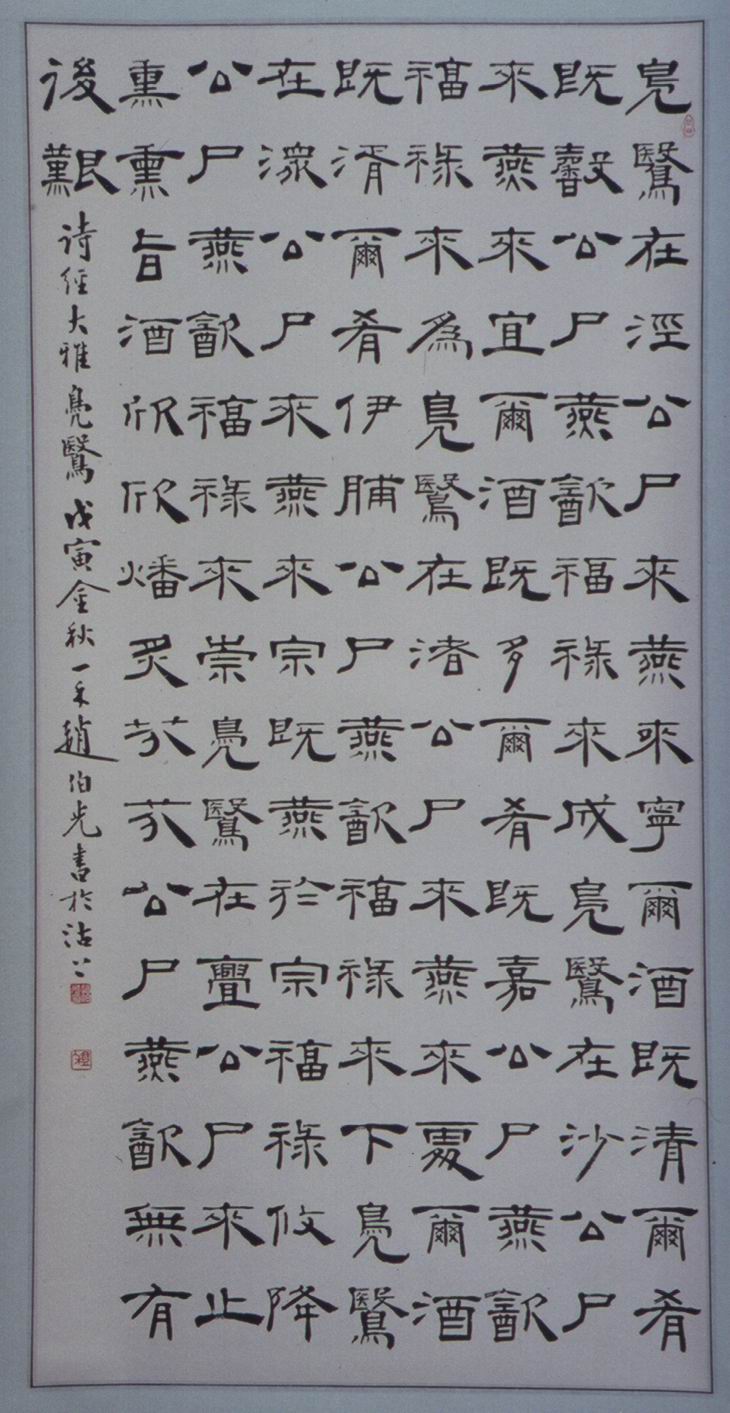 鳧鷖在涇公尸來燕來寧爾酒既清爾肴
既馨公尸燕㱃福祿來成鳧鷖在沙公尸
來燕來宜爾酒既多爾肴既嘉公尸燕㱃
福祿來爲鳧鷖在渚公尸來燕來處爾酒
既湑爾肴伊脯公尸燕㱃福祿來下鳧鷖
在潀公尸來燕來宗既燕於宗福祿攸降
公尸燕㱃福祿來崇鳧鷖在亹公尸來止
熏熏旨酒欣欣燔炙芬芬公尸燕㱃無有
後艱
诗經大雅鳧鷖戊寅金秋一禾趙伯光書於沽上